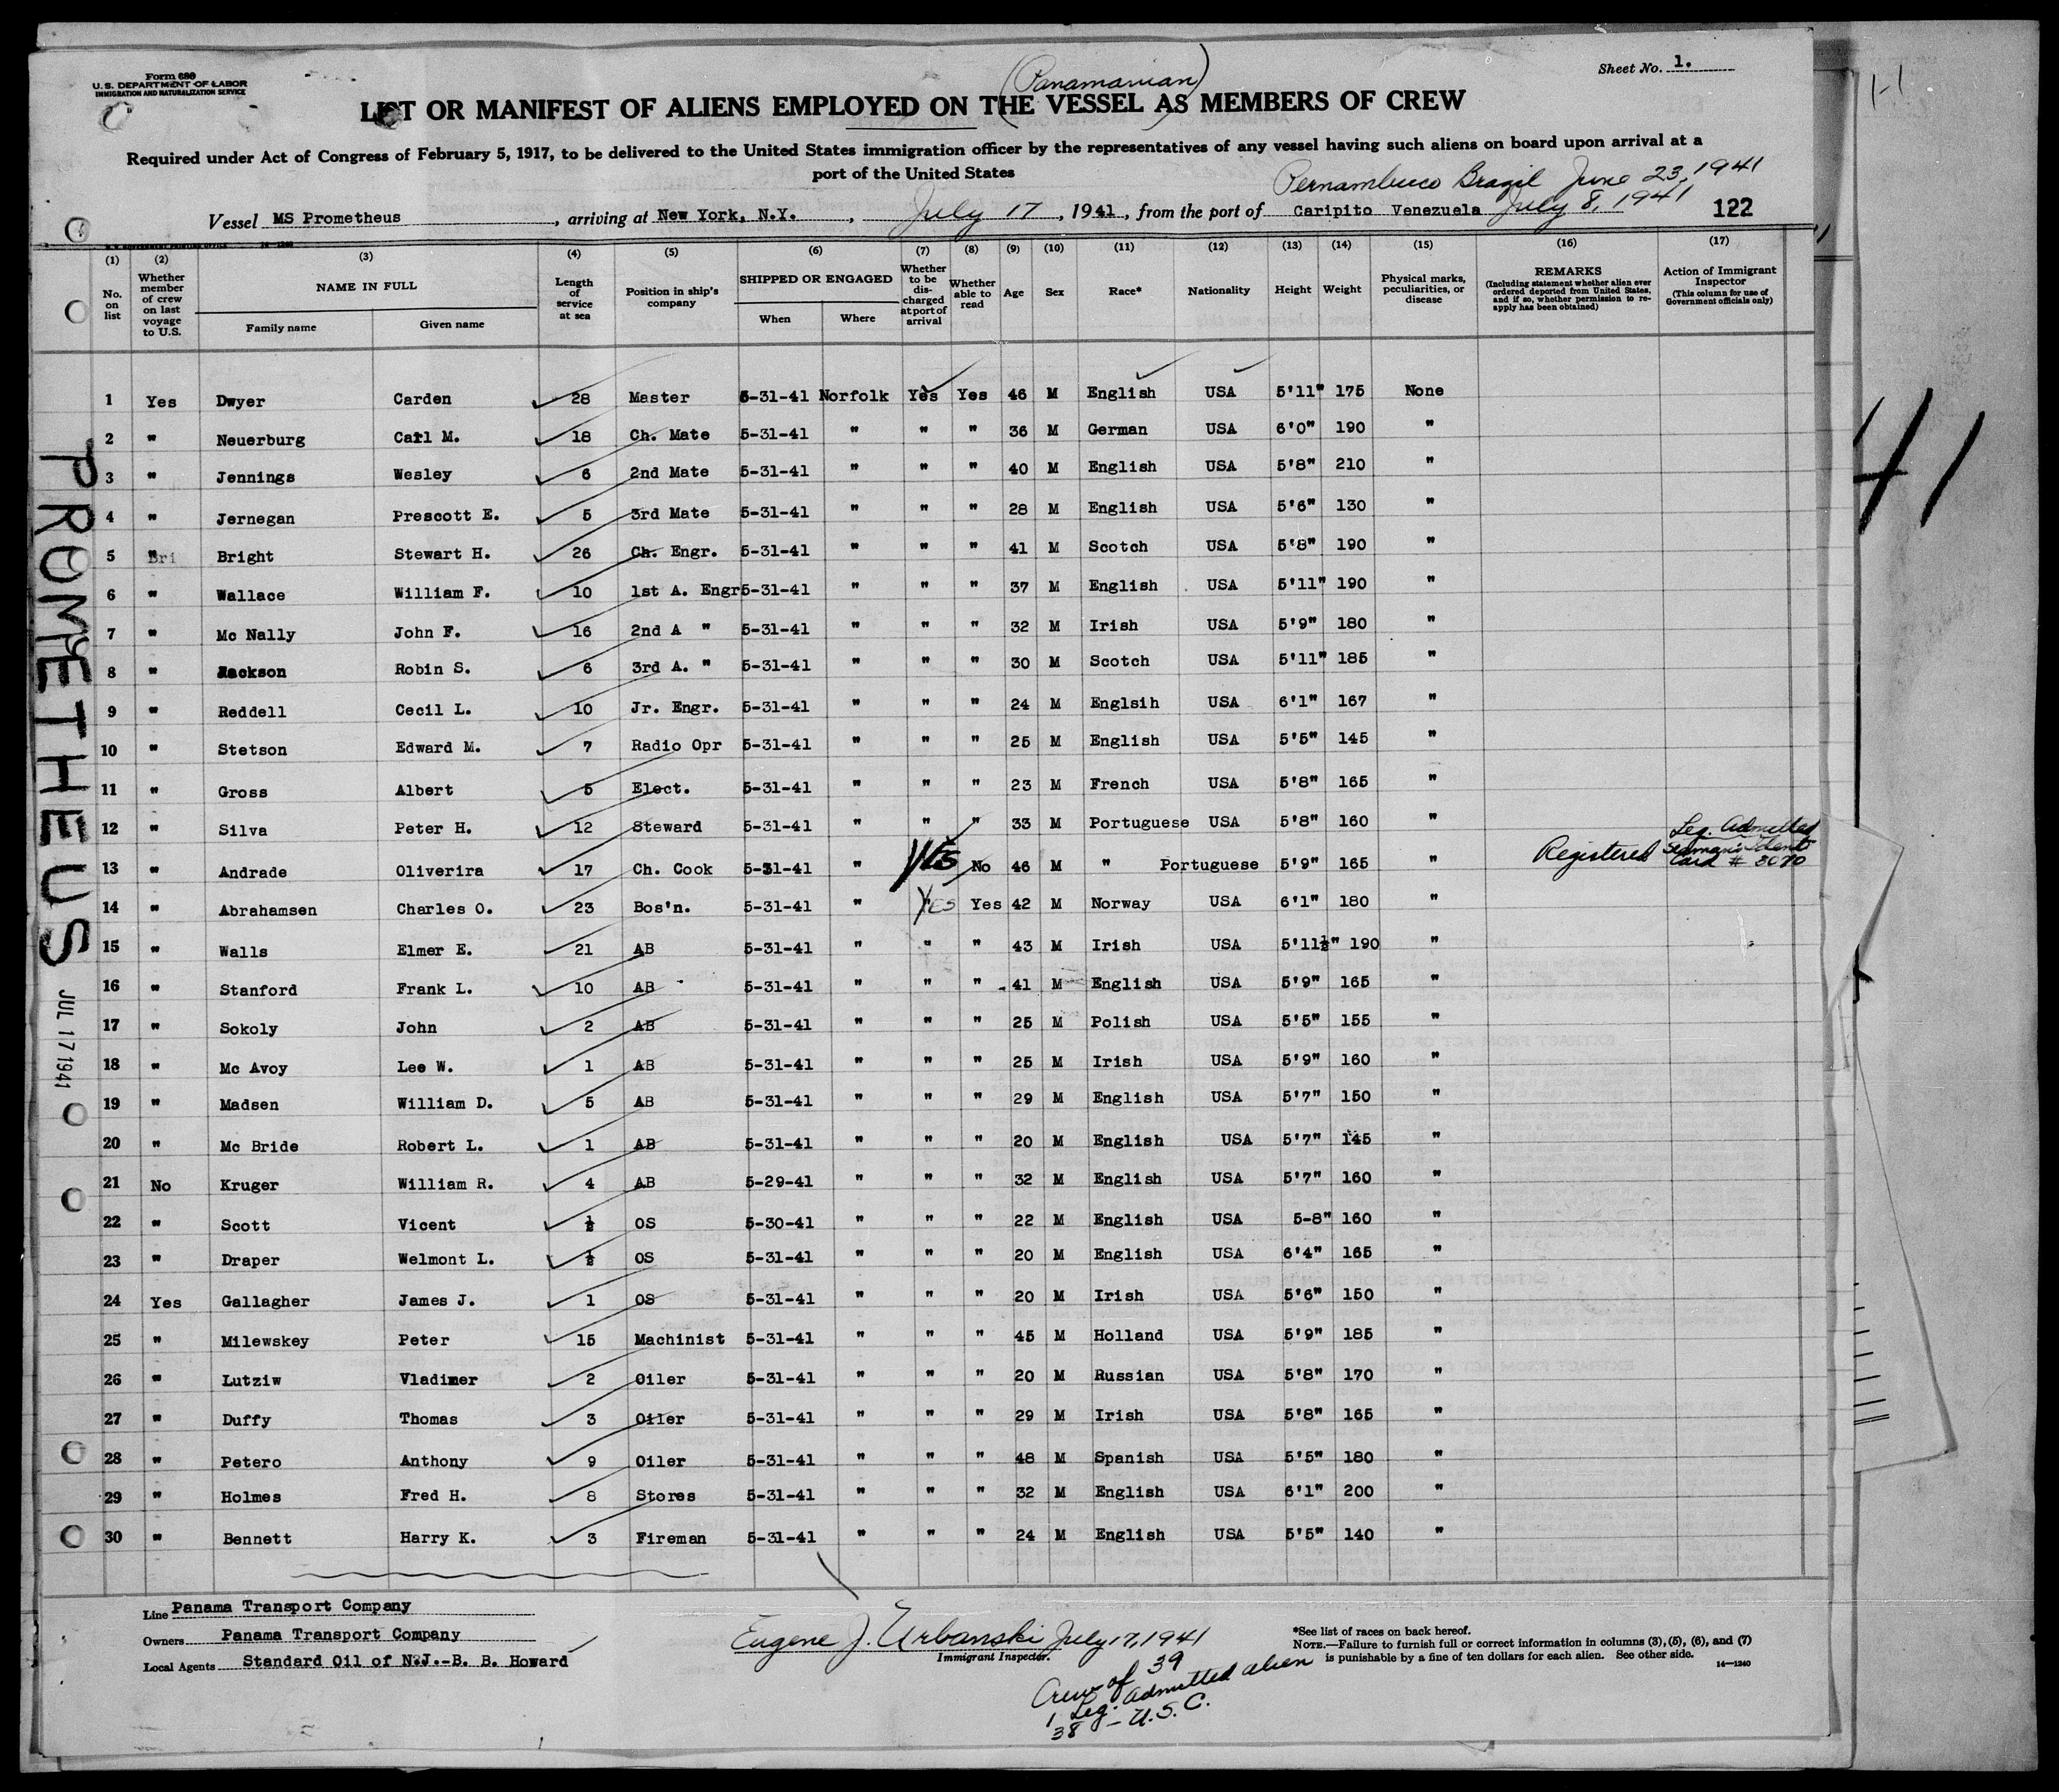 Form 680
U. S. DEPARTMENT OF LABOR
IMMIGRATION AND NATURALIZATION SERVICE
Sheet No. 1.
(Panamanian)
LIST OR MANIFEST OF ALIENS EMPLOYED ON THE VESSEL AS MEMBERS OF CREW
Required under Act of Congress of February 5, 1917, to be delivered to the United States immigration officer by the representatives of any vessel having such aliens on board upon arrival at a
port of the United States
Pernambuco Brazil June 23, 1941
Vessel MS Prometheus, arriving at New York, N.Y., July 17, 1941, from the port of Caripito Venezuela July 8, 1941 122
(1) (2) (3) (4) (5) (6) (7) (8) (9) (10) (11) (12) (13) (14) (15) (16) (17)
No. on list
Whether member of crew on last voyage to U.S.
NAME IN FULL
Family name Given name
Length of service at sea
Position in ship's company
SHIPPED OR ENGAGED
When Where
Whether to be discharged at port of arrival
Whether able to read
Age
Sex
Race*
Nationality
Height
Weight
Physical marks, peculiarities, or disease
REMARKS
(Including statement whether alien ever ordered deported from United States, and if so, whether permission to reapply has been obtained)
Action of Immigrant Inspector
(This column for use of Government officials only)
1 Yes Dwyer Carden 28 Master 5-31-41 Norfolk Yes Yes 46 M English USA 5'11" 175 None
2 " Neuerburg Carl M. 18 Ch. Mate 5-31-41 " " " 36 M German USA 6'0" 190 "
3 " Jennings Wesley 6 2nd Mate 5-31-41 " " " 40 M English USA 5'8" 210 "
4 " Jernegan Prescott E. 5 3rd Mate 5-31-41 " " " 28 M English USA 5'6" 130 "
5 " Bright Stewart H. 26 Ch. Engr. 5-31-41 " " " 41 M Scotch USA 5'8" 190 "
6 " Wallace William F. 10 1st A. Engr 5-31-41 " " " 37 M English USA 5'11" 190 "
7 " Mc Nally John F. 16 2nd A " 5-31-41 " " " 32 M Irish USA 5'9" 180 "
8 " Jackson Robin S. 6 3rd A. " 5-31-41 " " " 30 M Scotch USA 5'11" 185 "
9 " Reddell Cecil L. 10 Jr. Engr. 5-31-41 " " " 24 M Englsih USA 6'1" 167 "
10 " Stetson Edward M. 7 Radio Opr 5-31-41 " " " 25 M English USA 5'5" 145 "
11 " Gross Albert 5 Elect. 5-31-41 " " " 23 M French USA 5'8" 165 "
12 " Silva Peter H. 12 Steward 5-31-41 " " " 33 M Portuguese USA 5'8" 160 "
13 " Andrade Oliverira 17 Ch. Cook 5-31-41 " Yes No 46 M " Portuguese 5'9" 165 " Registered Leg. Admitted Seman's Ident Card # 8070
14 " Abrahamsen Charles O. 23 Bos'n. 5-31-41 " Yes Yes 42 M Norway USA 6'1" 180 "
15 " Walls Elmer E. 21 AB 5-31-41 " " " 43 M Irish USA 5'11½" 190 "
16 " Stanford Frank L. 10 AB 5-31-41 " " " 41 M English USA 5'9" 165 "
17 " Sokoly John 2 AB 5-31-41 " " " 25 M Polish USA 5'5" 155 "
18 " Mc Avoy Lee W. 1 AB 5-31-41 " " " 25 M Irish USA 5'9" 160 "
19 " Madsen William D. 5 AB 5-31-41 " " " 29 M English USA 5'7" 150 "
20 " Mc Bride Robert L. 1 AB 5-31-41 " " " 20 M English USA 5'7" 145 "
21 No Kruger William R. 4 AB 5-29-41 " " " 32 M English USA 5'7" 160 "
22 " Scott Vicent ½ OS 5-30-41 " " " 22 M English USA 5-8" 160 "
23 " Draper Welmont L. ½ OS 5-31-41 " " " 20 M English USA 6'4" 165 "
24 Yes Gallagher James J. 1 OS 5-31-41 " " " 20 M Irish USA 5'6" 150 "
25 " Milewskey Peter 15 Machinist 5-31-41 " " " 45 M Holland USA 5'9" 185 "
26 " Lutziw Vladimer 2 Oiler 5-31-41 " " " 20 M Russian USA 5'8" 170 "
27 " Duffy Thomas 3 Oiler 5-31-41 " " " 29 M Irish USA 5'8" 165 "
28 " Petero Anthony 9 Oiler 5-31-41 " " " 48 M Spanish USA 5'5" 180 "
29 " Holmes Fred H. 8 Stores 5-31-41 " " " 32 M English USA 6'1" 200 "
30 " Bennett Harry K. 3 Fireman 5-31-41 " " " 24 M English USA 5'5" 140 "
PROMETHEUS
JUL 17 1941
41
Line Panama Transport Company
Owners Panama Transport Company
Local Agents Standard Oil of N.J.-B. B. Howard
Eugene J. Urbanski July 17, 1941
Immigrant Inspector.
Crew of 39
1 Leg. Admitted alien
38 - U.S.C.
*See list of races on back hereof.
NOTE.—Failure to furnish full or correct information in columns (3), (5), (6), and (7)
is punishable by a fine of ten dollars for each alien. See other side.
14—1240